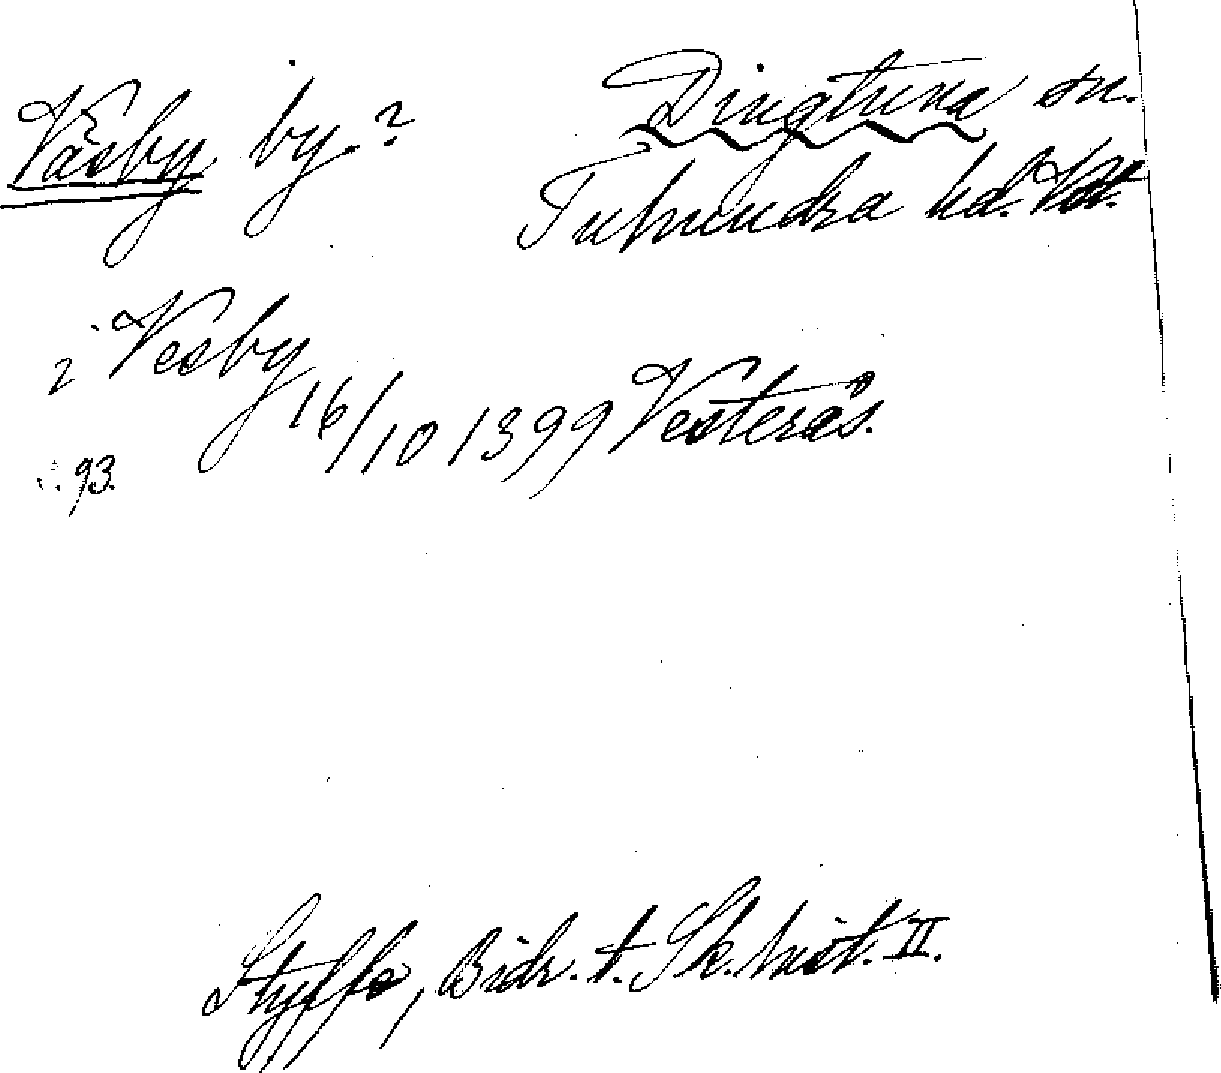 Väsby by.? Dingtuna sn.
Tuhundra hd. Vstm.
? Vesby 16/10 1399 Vesterås.
s. 93.
Styffe, Bidr. t. Sk. hist. II.